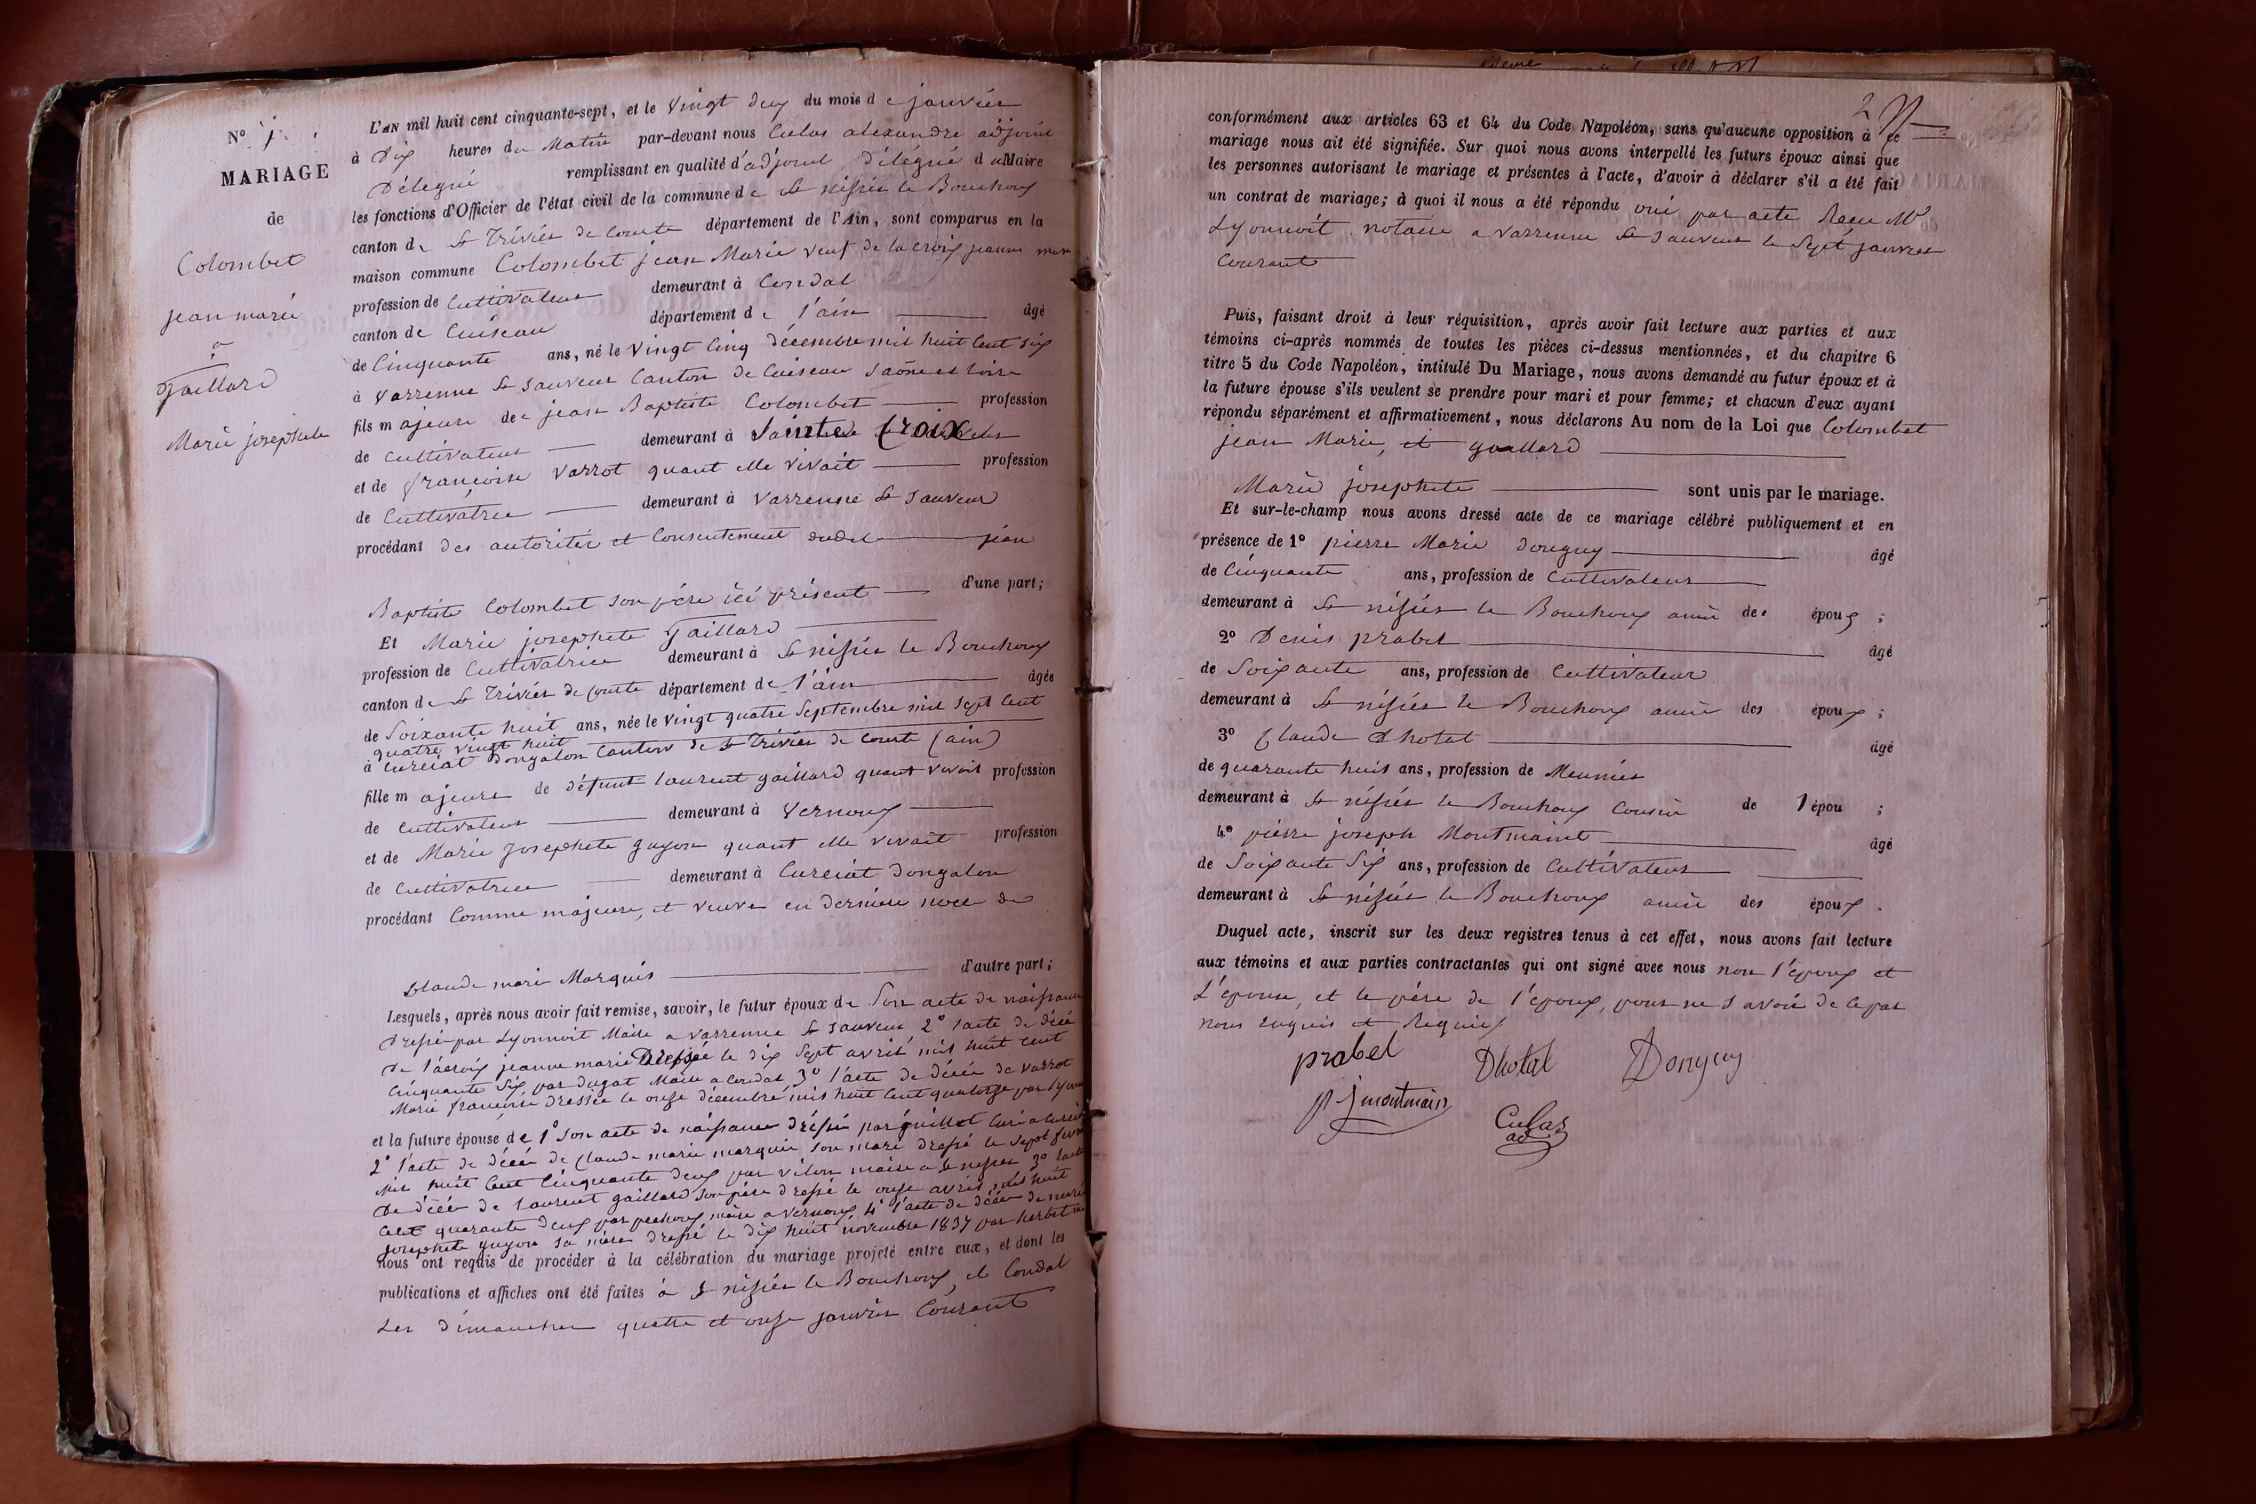 N° 1.
MARIAGE
de
Colombet
jean marié
a
Gaillard
Marie josephete
L'AN mil huit cent cinquante-sept, et le vingt deux du mois de janvier
à Dix heures du Matin par-devant nous Culas alexandre adjoint
Délégué remplissant en qualité d'adjoint Délégué du Maire
les fonctions d'Officier de l'état civil de la commune de St nizier le Bouchoux
canton de St Trivier de Courte département de l'Ain, sont comparus en la
maison commune Colombet jean Marie veuf de lacroix jeanne mari
profession de Cultivateur demeurant à Condal
canton de Cuiseau département de l'ain âgé
de Cinquante ans, né le Vingt Cinq décembre mil huit Cent six
à Varrenne St Sauveur Canton de Cuiseau Saône et loire
fils majeur de jean Baptiste Colombet profession
de Cultivateur demeurant à Sainte Croix
et de françoise Varrot quant elle vivait profession
de Cultivatrice demeurant à Varrenne St Sauveur
procédant des autorités et Consentement dudit jean
Baptiste Colombet son père ici présent d'une part;
Et Marie josephete Gaillard
profession de Cultivatrice demeurant à St nizier le Bouchoux
canton de St Trivier de Courte département de l'ain âgée
de Soixante huit ans, née le vingt quatre Septembre mil sept Cent
quatre vingt huit
à Curciat Dongalon Canton de St Trivier de Courte (ain)
fille majeure de défunt laurent gaillard quant vivait profession
de Cultivateur demeurant à Vernoux
et de Marie Josephete guyon quant elle vivait profession
de Cultivatrice demeurant à Curciat Dongalon
procédant Comme majeure, et veuve en dernière noce de
Claude mari Marquis d'autre part;
Lesquels, après nous avoir fait remise, savoir, le futur époux de Son acte de naissance
Dressé par Lyonnoit Maire a varrenne St Sauveur 2° l'acte de décé
De lacroix jeanne marie Dressée le dix Sept avril mil huit Cent
Cinquante Six par dugat Maire a Condal 3° l'acte de décée de Varrot
Marie françoise dressée le onze décembre mil huit Cent quatorze par Lyonn
et la future épouse de 1° Son acte de naissance dréssé par guillot Curé a Curciat
2° l'acte de décé de Claude marie marquis Son mari dressé le Sept
Mil huit Cent Cinquante deux par maire a St nizier 3° l'acte
De décé de laurent gaillard Son père dressé le onze avril mil huit
Cent quarante deux par pechoux maire a Vernoux 4° l'acte de décée de marie
josephete guyon Sa mère dressé le dix huit novembre 1837 par herbet
nous ont requis de procéder à la célébration du mariage projeté entre eux, et dont les
publications et affiches ont été faites à St nizier le Bouchoux, et Condal
Les dimanches quatre et onze janvier Courant
2
conformément aux articles 63 et 64 du Code Napoléon, sans qu'aucune opposition à ce
mariage nous ait été signifiée. Sur quoi nous avons interpellé les futurs époux ainsi que
les personnes autorisant le mariage et présentes à l'acte, d'avoir à déclarer s'il a été fait
un contrat de mariage; à quoi il nous a été répondu oui par acte Recu Me
Lyonnoit notaire a varrenne St Sauveur le Sept janvier
Courant
Puis, faisant droit à leur réquisition, après avoir fait lecture aux parties et aux
témoins ci-après nommés de toutes les pièces ci-dessus mentionnées, et du chapitre 6
titre 5 du Code Napoléon, intitulé Du Mariage, nous avons demandé au futur époux et à
la future épouse s'ils veulent se prendre pour mari et pour femme; et chacun d'eux ayant
répondu séparément et affirmativement, nous déclarons Au nom de la Loi que Colombet
jean Marie, et guallard
Marie josephete sont unis par le mariage.
Et sur-le-champ nous avons dressé acte de ce mariage célébré publiquement et en
présence de 1° pierre Marie Donguy âgé
de Cinquante ans, profession de Cultivateur
demeurant à St nizier le Bouchoux amie des époux ;
2° Denis prabel âgé
de Soixante ans, profession de Cultivateur
demeurant à St nizier le Bouchoux amie des époux ;
3° Claude Dhotal âgé
de quarante huit ans, profession de Meunier
demeurant à St nizier le Bouchoux Cousin de l épou ;
4° pierre joseph Montmaint âgé
de Soixante Six ans, profession de Cultivateur
demeurant à St nizier le Bouchoux amie des époux .
Duquel acte, inscrit sur les deux registres tenus à cet effet, nous avons fait lecture
aux témoins et aux parties contractantes qui ont signé avec nous non l'époux et
L'épouse, et le père de l'époux, pour ne Savoir de ce par
nous enquis et Requis
prabel Dhotal Donguy
p j montmain Culas
ad